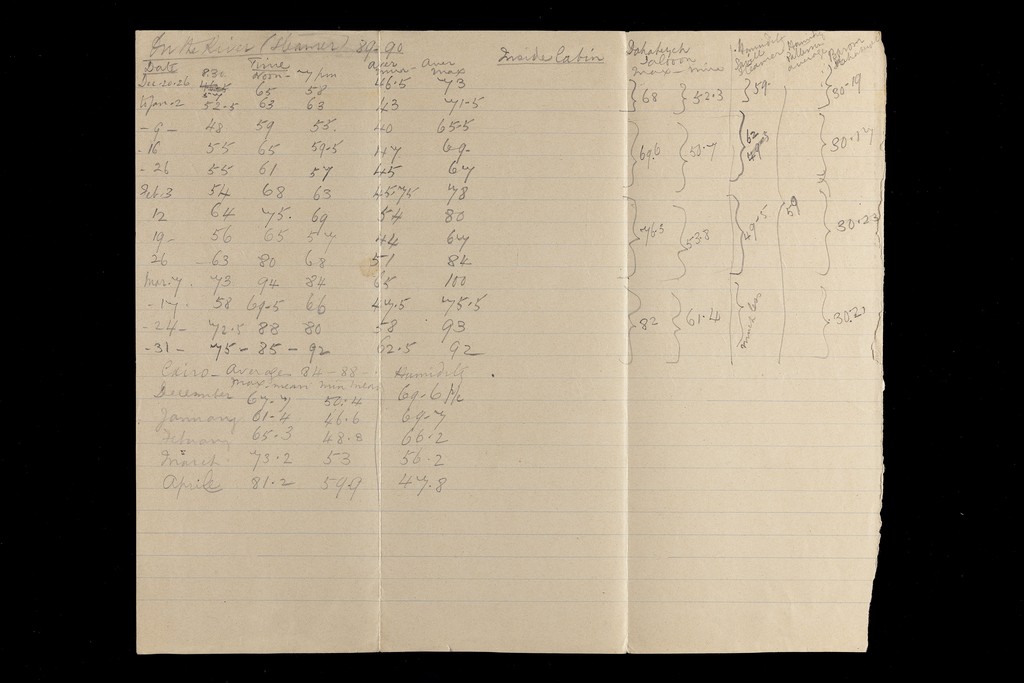 On the River (Steamer) 89-90 Inside Cabin Dahabeyeh Saloon max - mina Humidity Steamer Humidity average Barom
Date 8 30 Time Noon - 7 pm aver mina - aver max
Dec. 20-26 57 65 58 46.5 73 68 52.3 59. 30.19
to Jan. 2 52.5 63 63 43 71.5
- 9 - 48 59 55. 40 65.5 62 49 30.17
- 16 55 65 59.5 47 69. 69.6 50.7
- 26 55 61 57 45 67
Feb. 3 54 68 63 45.75 78
12 64 75. 69 54 80 59
19 - 56 65 57 44 67 763 538 49.5 30.23
26 - 63 80 68 51 84
Mar. 7. 73 94 84 65 100
- 17. 58 69.5 66 47.5 75.5 82 61.4 much less 30.21
- 24 - 72.5 88 80 58 93
- 31 - 75 - 85 - 92 62.5 92
Cairo - Averages 84 - 88 - Humidity
max. mean min mean
December 67.7 50.4 69.6 Pc
January 61.4 46.6 69.7
February 65.3 48.8 66.2
March 73.2 53 56.2
April 81.2 599 47.8